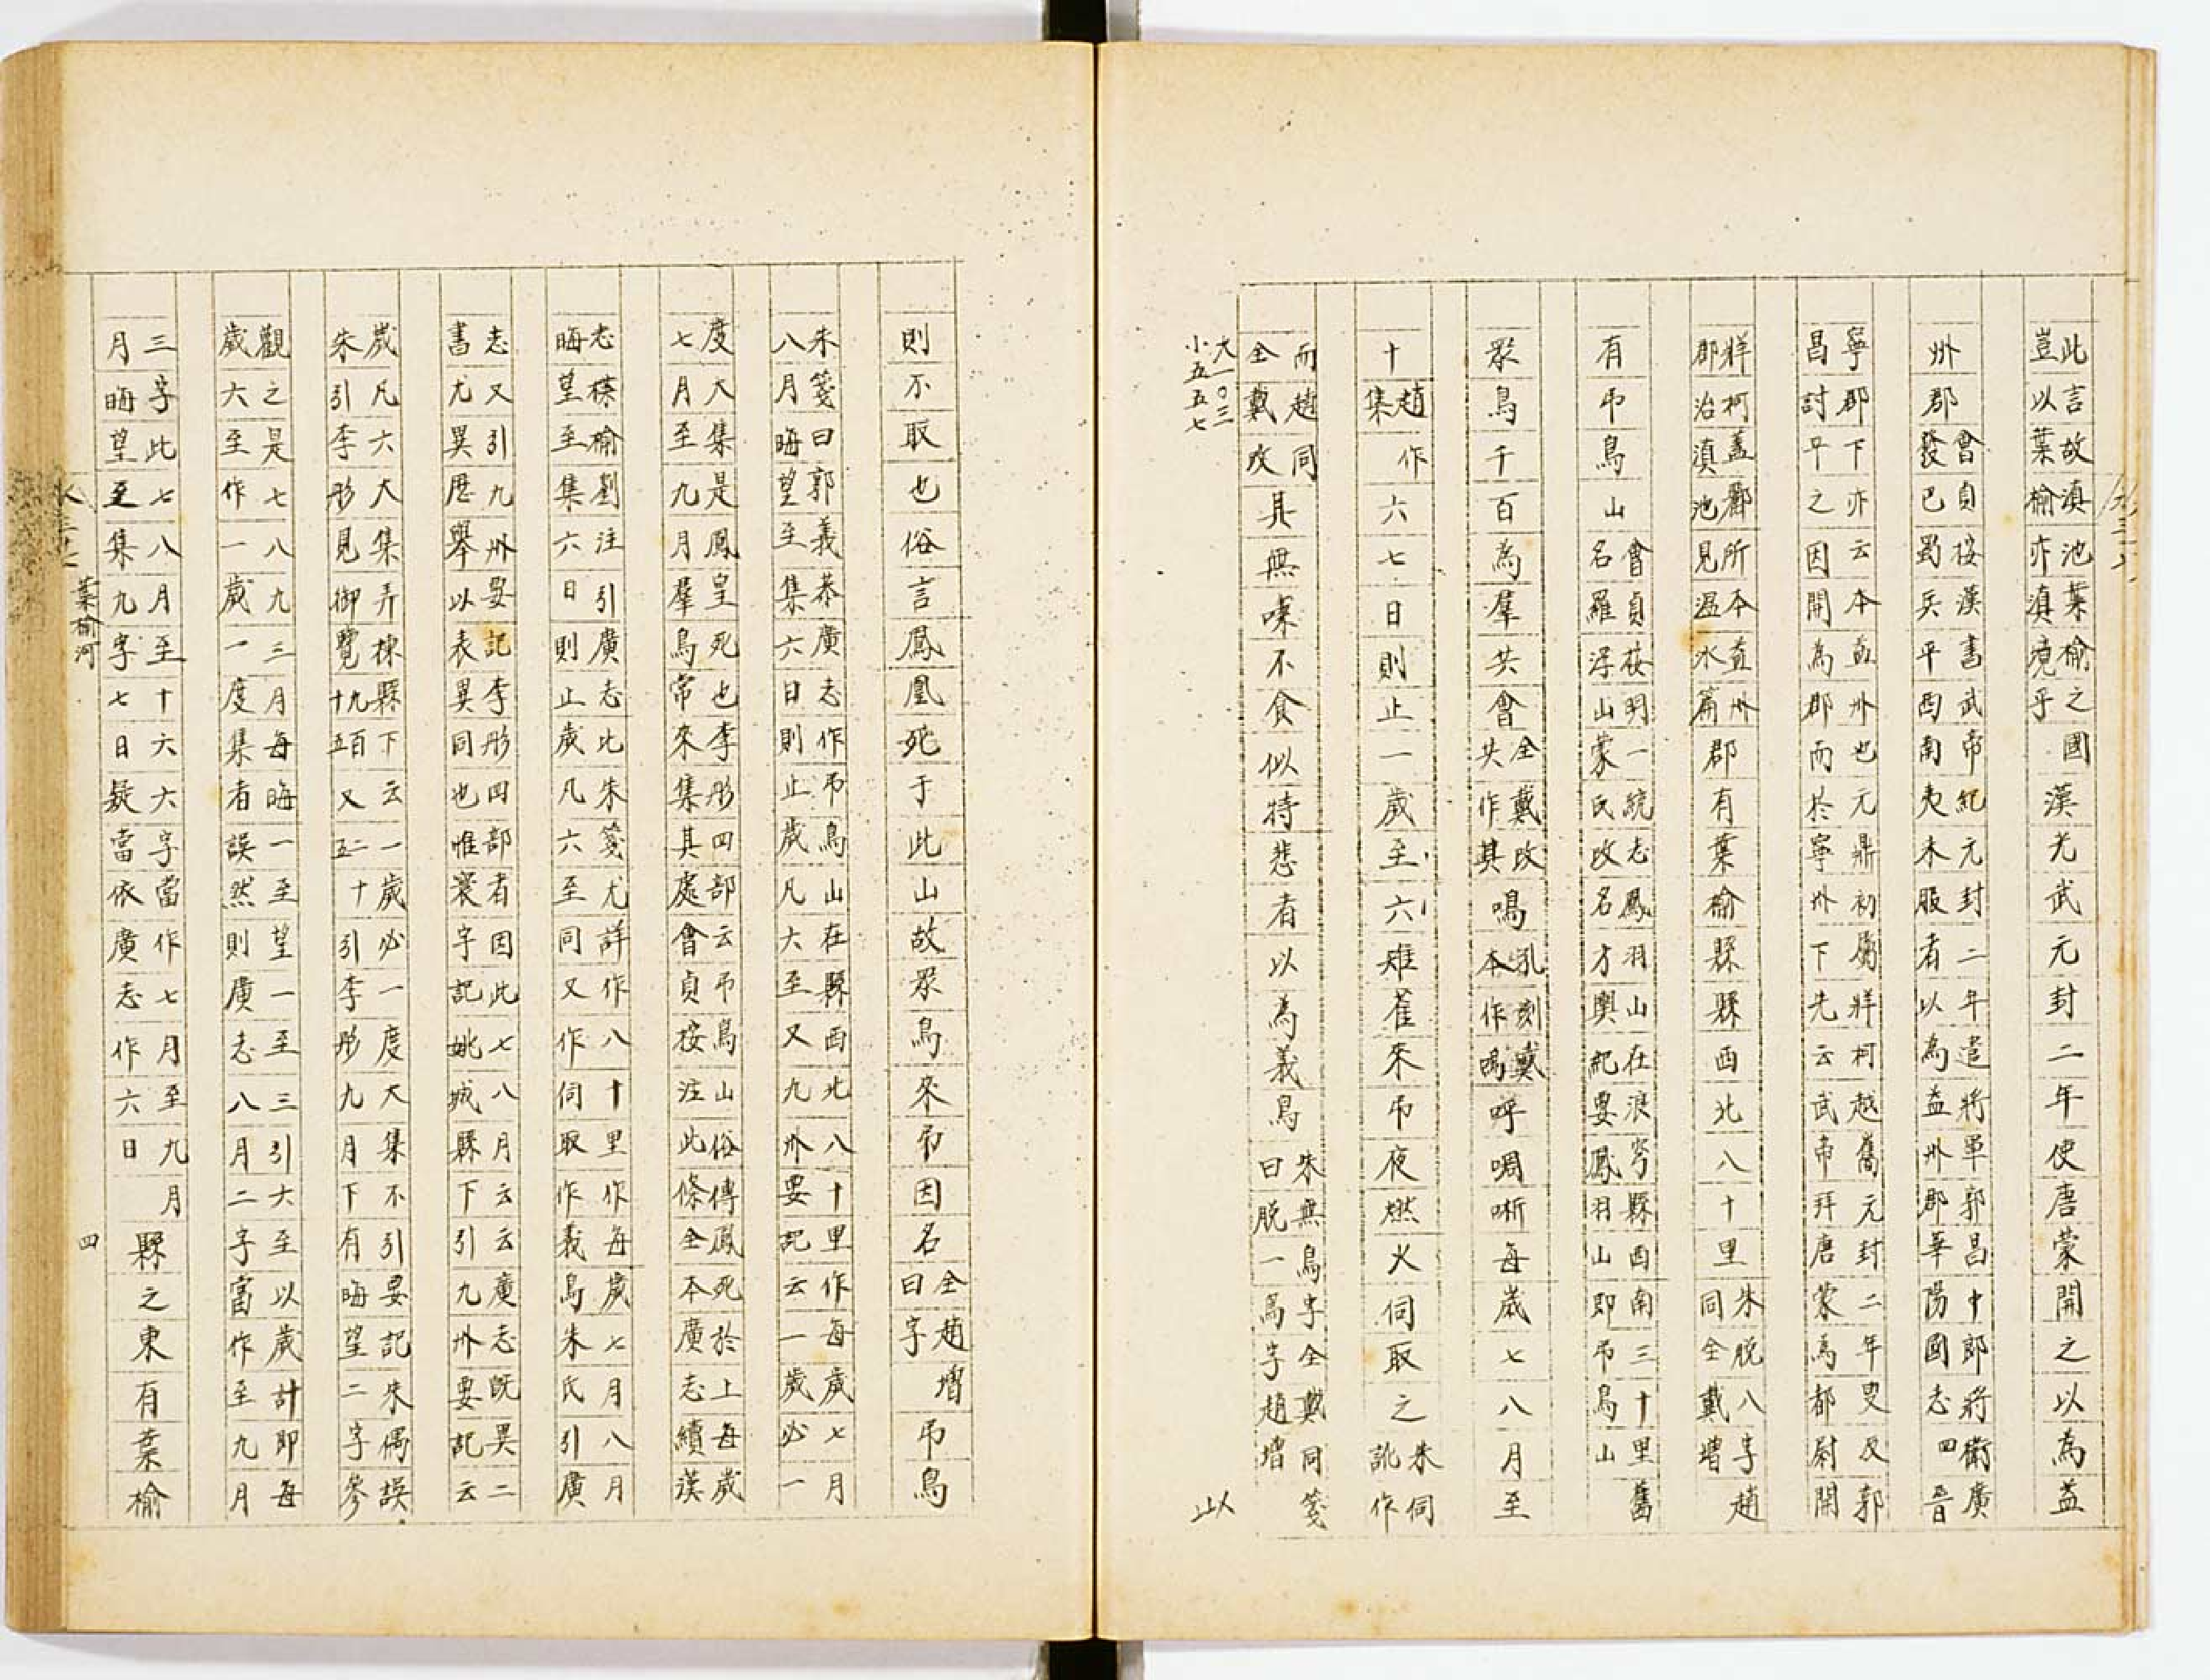 此言故滇池葉榆之豈以葉榆亦滇境乎國漢光武元封二年使唐蒙開之以為益
州郡會貞按漢書武帝紀元封二年遣將軍郭昌中郎將衛廣發巴蜀兵平西南夷未服者以為益州郡華陽國志四晉
寧郡下亦云本益州也元鼎初屬牂柯越舊元封二年叟反郭昌討平之因開為郡而於寧州下先云武帝拜唐蒙為都尉開
牂柯蓋酈所本益州郡治滇池見溫水篇郡有葉榆縣縣西北八十里朱脱八字趙同全戴增
有弔鳥山會貞按明一統志鳳羽山在浪穹縣西南三十里舊名羅浮山蒙氏改名方輿紀要鳳羽山即弔鳥山
眾鳥千百為羣共會全戴改共作其鳴孔刻戴本作嗚呼啁哳每歲七八月至
十趙作集六七日則止一歲至六雉雀來弔夜燃火伺取之朱伺訛作
而趙同全戴改其無嗉不食似特悲者以為義鳥朱無鳥字全戴同箋曰脱一鳥字趙增
大一〇三
小五五七
則不取也俗言鳳凰死于此山故眾鳥來弔因名全趙增曰字弔鳥
朱箋曰郭義恭廣志作弔鳥山在縣西北八十里作每歲七月八月晦望至集六日則止歲凡六至又九州要記云一歲必一
度大集是鳳皇死也李彤四部云弔鳥山俗傳鳳死於上每歲七月至九月羣鳥常來集其處會貞按注此條全本廣志續漢
志楪榆劉注引廣志比朱箋尤詳作八十里作每歲七月八月晦望至集六日則止歲凡六至同又作伺取作義鳥朱氏引廣
志又引九州要記李彤四部者因此七八月云云廣志既異二書尤異歷舉以表異同也惟寰宇記姚城縣下引九州要記云
歲凡六大集弄棟縣下云一歲必一度大集不引要記朱偶誤朱引李彤見御覽九百十五又一五十引李彤九月下有晦望二字參
觀之是七八九三月每晦一至望一至三引大至以歲計即每歲六至作一歲一度集者誤然則廣志八月二字當作至九月
三字此七八月至十六六字當作七月至九月月晦望至集九字七日疑當依廣志作六日縣之東有葉榆
葉榆河
四